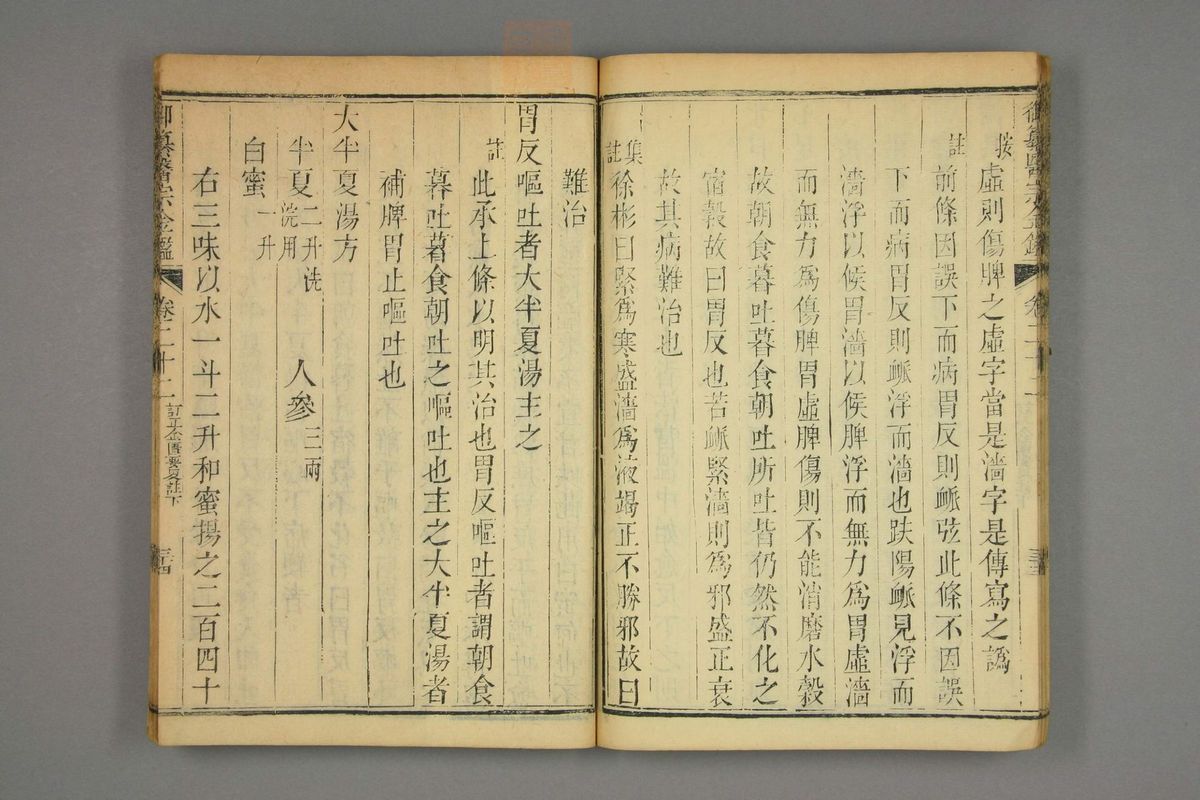 御纂醫宗金鑑 卷二十二
三十三
按 虛則傷脾之虛字當是濇字是傳寫之譌
註 前條因誤下而病胃反則脈弦此條不因誤
下而病胃反則脈浮而濇也趺陽脈見浮而
濇浮以候胃濇以候脾浮而無力為胃虛濇
而無力為傷脾胃虛脾傷則不能消磨水穀
故朝食暮吐暮食朝吐所吐皆仍然不化之
宿穀故曰胃反也若脈緊濇則為邪盛正衰
故其病難治也
集註 徐彬曰緊為寒盛濇為液竭正不勝邪故曰
難治
胃反嘔吐者大半夏湯主之
註 此承上條以明其治也胃反嘔吐者謂朝食
暮吐暮食朝吐之嘔吐也主之大半夏湯者
補脾胃止嘔吐也
大半夏湯方
半夏二升洗洗用 人參三兩
白蜜一升
右三味以水一斗二升和蜜揚之二百四十
御纂醫宗金鑑 卷二十二 訂正金匱要畧註下
三十四